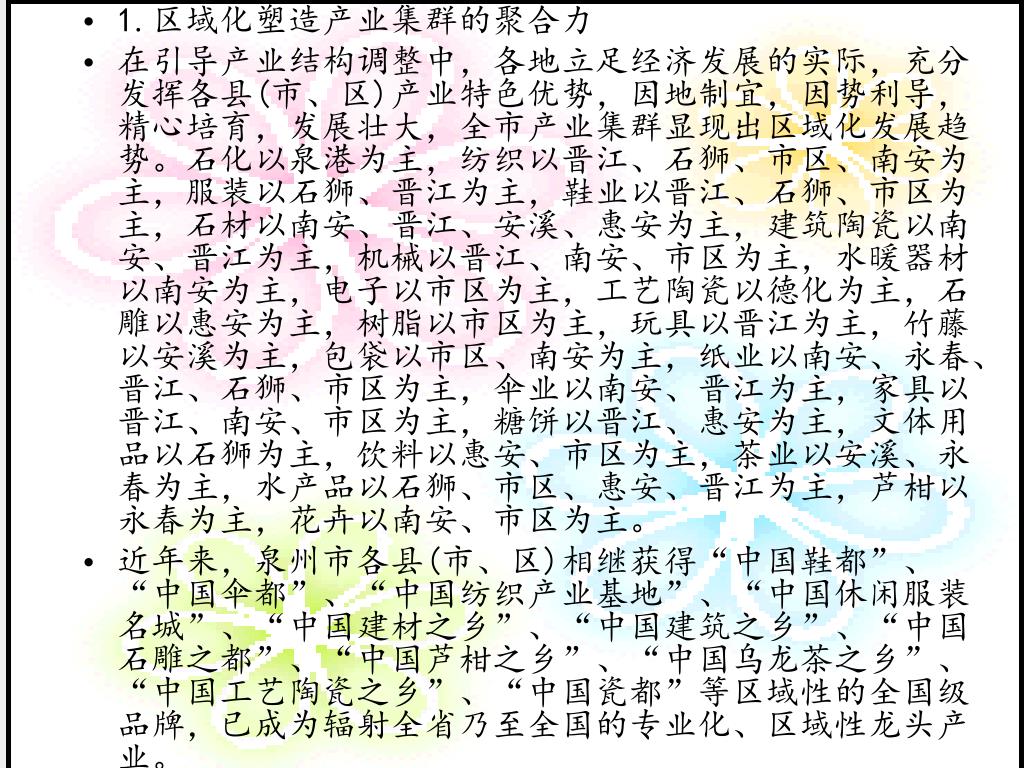 • 1.区域化塑造产业集群的聚合力
• 在引导产业结构调整中，各地立足经济发展的实际，充分
发挥各县(市、区)产业特色优势，因地制宜，因势利导，
精心培育，发展壮大，全市产业集群显现出区域化发展趋
势。石化以泉港为主，纺织以晋江、石狮、市区、南安为
主，服装以石狮、晋江为主，鞋业以晋江、石狮、市区为
主，石材以南安、晋江、安溪、惠安为主，建筑陶瓷以南
安、晋江为主，机械以晋江、南安、市区为主，水暖器材
以南安为主，电子以市区为主，工艺陶瓷以德化为主，石
雕以惠安为主，树脂以市区为主，玩具以晋江为主，竹藤
以安溪为主，包袋以市区、南安为主，纸业以南安、永春、
晋江、石狮、市区为主，伞业以南安、晋江为主，家具以
晋江、南安、市区为主，糖饼以晋江、惠安为主，文体用
品以石狮为主，饮料以惠安、市区为主，茶业以安溪、永
春为主，水产品以石狮、市区、惠安、晋江为主，芦柑以
永春为主，花卉以南安、市区为主。
• 近年来，泉州市各县(市、区)相继获得“中国鞋都”、
“中国伞都”、“中国纺织产业基地”、“中国休闲服装
名城”、“中国建材之乡”、“中国建筑之乡”、“中国
石雕之都”、“中国芦柑之乡”、“中国乌龙茶之乡”、
“中国工艺陶瓷之乡”、“中国瓷都”等区域性的全国级
品牌，已成为辐射全省乃至全国的专业化、区域性龙头产
业。